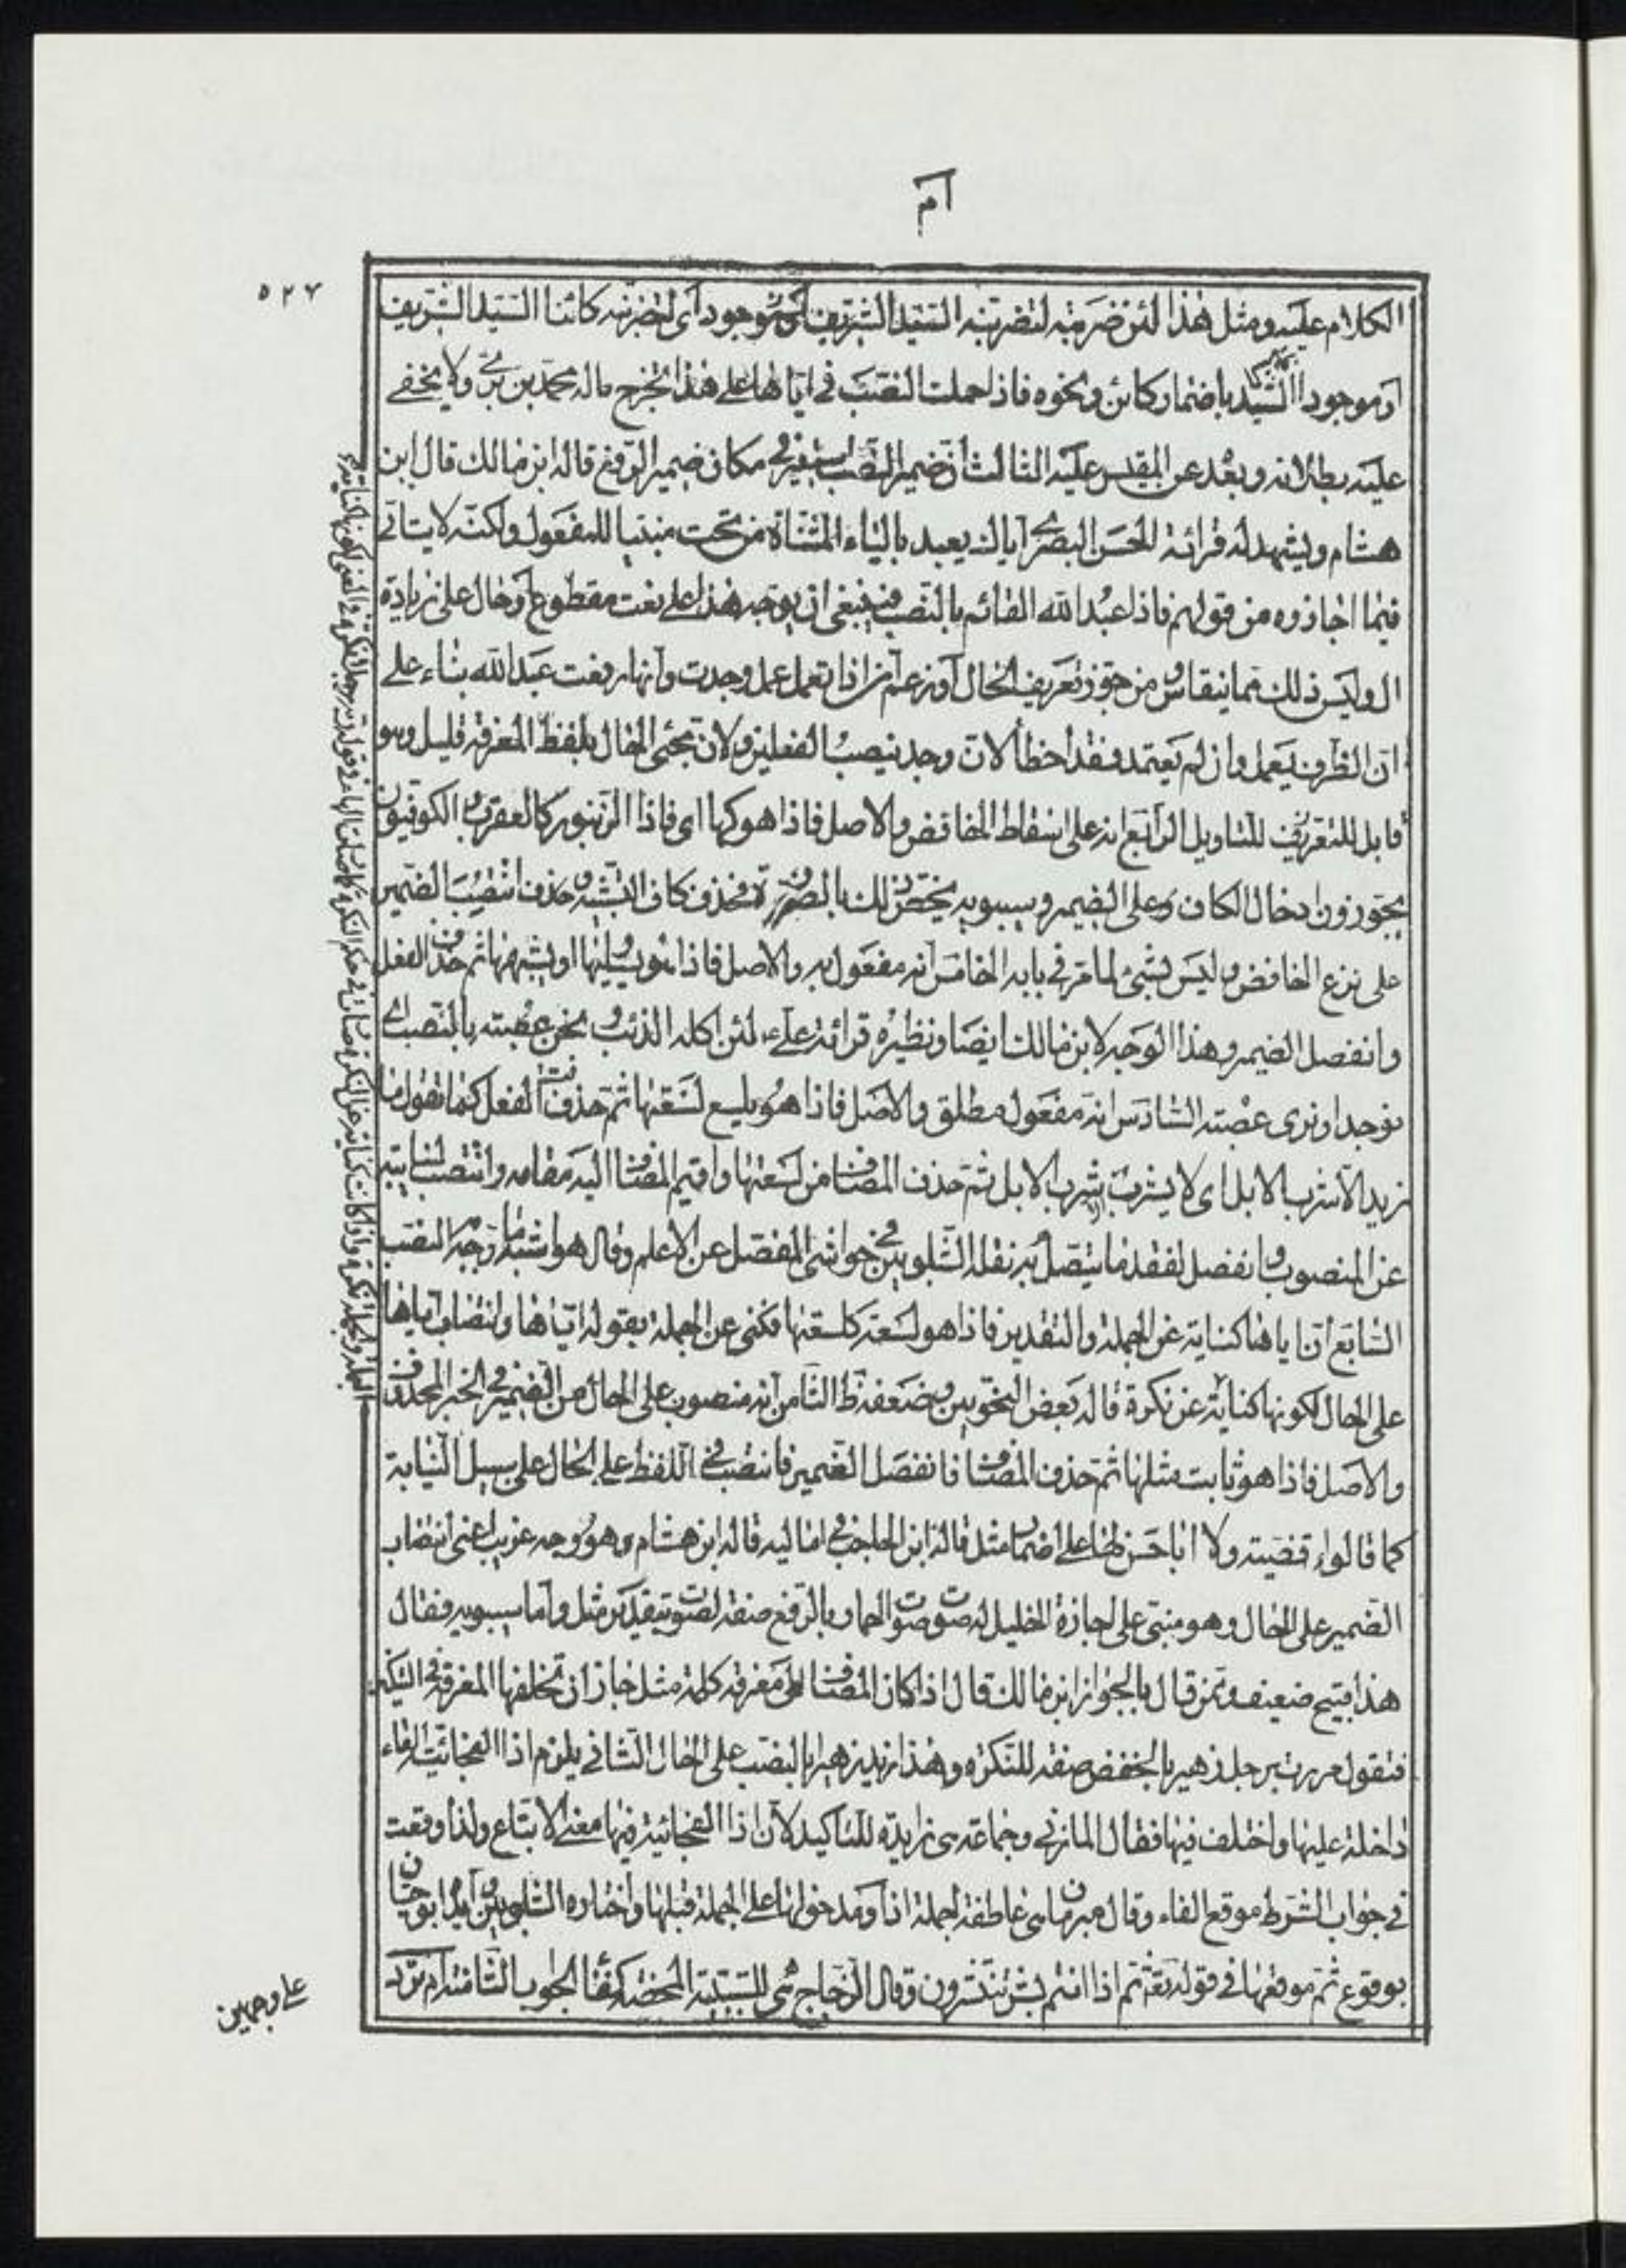 ام
٥٢٧
الكلام عليه ومثل هذا لئن ضربته لتضربنه السيد الشريف موجود اى لتضربنه كائنا السيد الشريف
او موجودا السيد باضمار كائن ونحوه فاذا حملت النصب فى اياها على هذا لخرج قاله محمد بن برى ولا يخفى
عليه بطلانه وبعده عن المقيس عليه الثالث ان ضمير النصب استعير فى مكان ضمير الرفع قاله ابن مالك قال ابن
هشام ويشهد له قرائة الحسن البصرى اياك يعبد بالياء المثناة من تحت مبنيا للمفعول ولكنه لا يتاتى
فيما اجازوه من قولهم فاذا عبد الله القائم بالنصب فينبغى ان يوجه هذا على نعت مقطوع او حال على زيادة
ال وليس ذلك مما ينقاس ومن جوز تعريف الحال او زعم ان اذا تعمل عمل وجدت وانها رفعت عبد الله بناء على
ان الظرف يعمل وان لم يعتمد فقد اخطأ لان وجد ينصب الفعلين ولان مجئ الحال بلفظ المعرفة قليل وهو
قابل للتعريف للتاويل الرابع انه على اسقاط الخافض والاصل فاذا هو كها اى فاذا الزنبور كالعقرب والكوفيون
يجوزون ادخال الكاف على الضمير وسيبويه يخص ذلك بالضرورة فحذف كاف التشبيه وحذف انتصب الضمير
على نزع الخافض وليس بشئ لما مر فى بابه الخامس انه مفعول به والاصل فاذا هو يليها او يشبهها ثم حذف الفعل
وانفصل الضمير وهذا الوجه لابن مالك ايضا ونظيره قرائة على لئن اكله الذئب ونحن عصبته بالنصب اى
نوجد او نرى عصبته السادس انه مفعول مطلق والاصل فاذا هو يلسع لسعتها ثم حذف الفعل كما تقول ما
زيد الا شرب الابل اى لا يشرب شرب الابل ثم حذف المضاف من لسعتها واقيم المضاف اليه مقامه وانتصب لنيابته
عن المنصوب وانفصل لفقد ما يتصل به نقله الشلوبين فى حواشى المفصل عن الاعلم وقال هو اشبه ما وجه النصب
السابع ان اياها كناية عن الجملة والتقدير فاذا هو لسعته كلسعتها فكنى عن الجملة بقوله اياها وانتصاب اياها
على الحال لكونها كناية عن نكرة قاله بعض النحويين وضعفه ظ الثامن انه منصوب على الحال من الضمير فى الخبر المحذوف
والاصل فاذا هو ثابت مثلها ثم حذف المضاف فانفصل الضمير فانتصب فى اللفظ على الحال على سبيل النيابة
كما قالوا قضية ولا ابا حسن لها على اضمار مثل قاله ابن الحاجب فى اماليه قاله ابن هشام وهو وجه غريب اعنى انتصاب
الضمير على الحال وهو مبنى على اجازة الخليل له صوت صوت الحمار بالرفع صفة لصوت بتقدير مثل واما سيبويه فقال
هذا قبيح ضعيف وممن قال بالجواز ابن مالك قال اذا كان المضاف الى معرفة كلمة مثل جاز ان تخلفها المعرفة فى التنكير
فتقول مررت برجل زهير بالخفض صفة للنكرة وهذا زيد زهيرا بالنصب على الحال الثانى يلزم اذا الفجائية الفاء
داخلة عليها واختلف فيها فقال المازنى وجماعة هى زايدة للتاكيد لان اذا الفجائية فيها معنى الاتباع ولذا وقعت
فى جواب الشرط موقع الفاء وقال مبرمان هى عاطفة لجملة اذا ومدخولها على الجملة قبلها واختاره الشلوبين وايده ابو حيان
بوقوع ثم موقعها فى قوله تعه ثم اذا انتم بشر تنتشرون وقال الزجاج هى للسببية المحضة كفاء الجواب الثامنة ام ترد
على وجهين